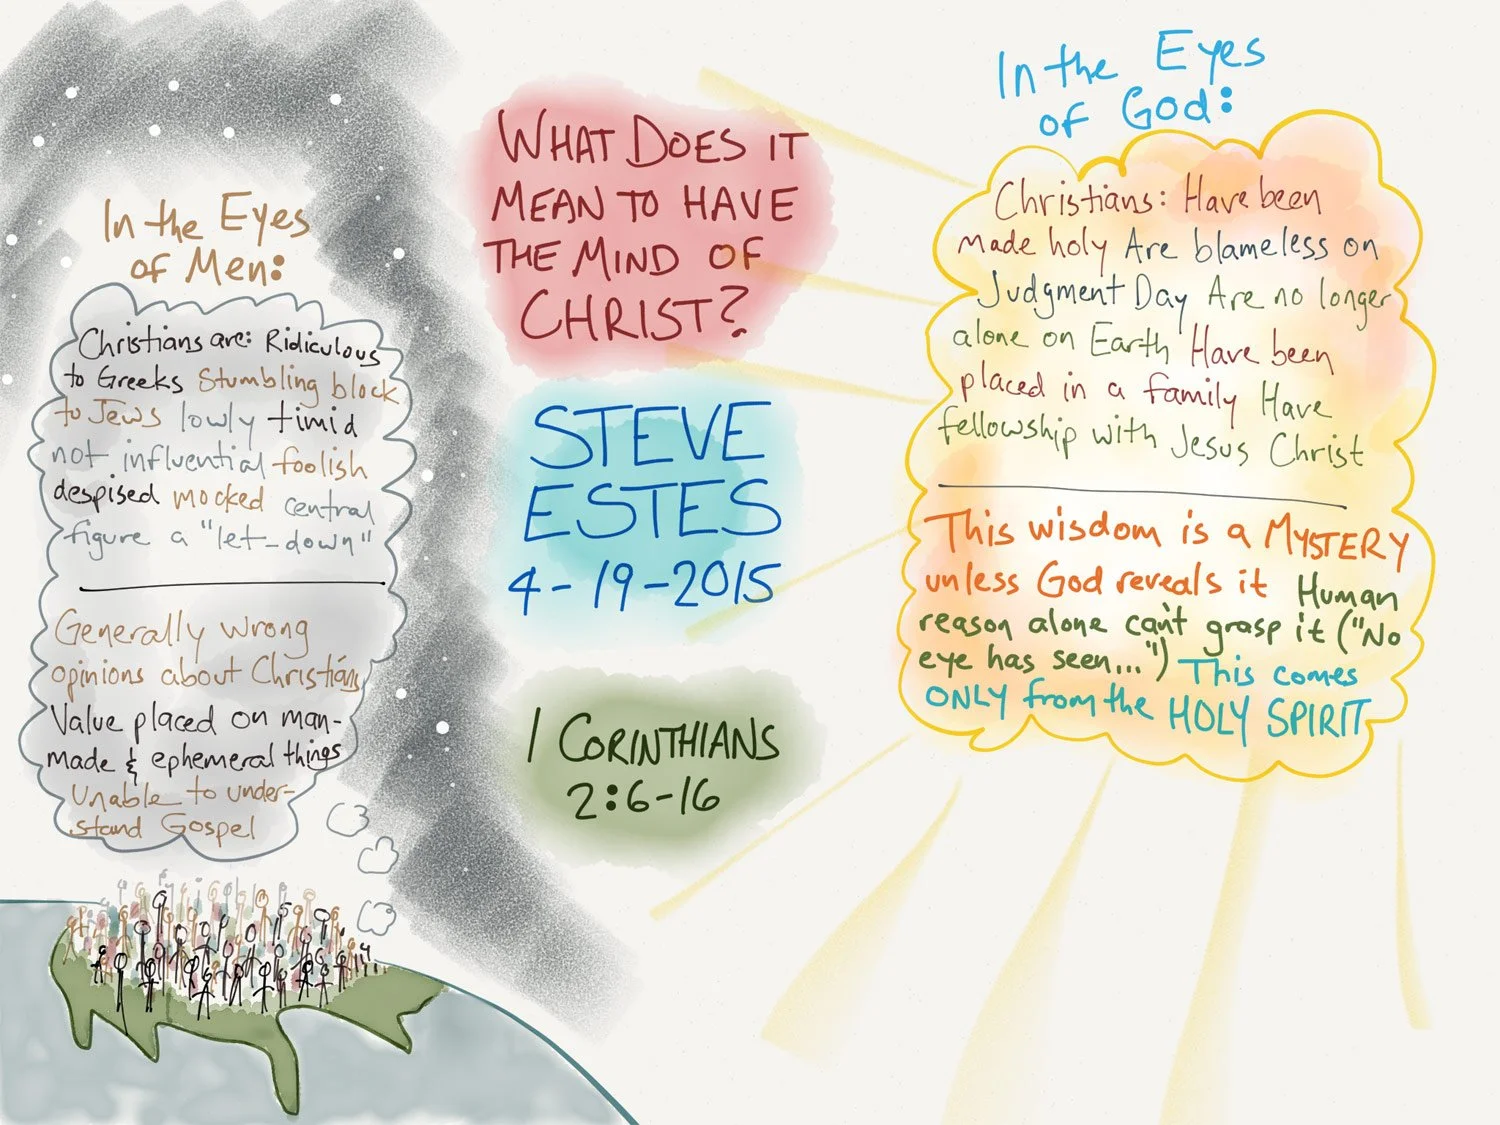 In the Eyes
of Men:
Christians are: Ridiculous
to Greeks Stumbling block
to Jews lowly timid
not influential foolish
despised mocked central
figure a "let-down"
Generally wrong
opinions about Christians
Value placed on man-
made & ephemeral things
Unable to under-
stand Gospel
WHAT DOES IT
MEAN TO HAVE
THE MIND OF
CHRIST?
STEVE
ESTES
4-19-2015
1 CORINTHIANS
2:6-16
In the Eyes
of God:
Christians: Have been
made holy Are blameless on
Judgment Day Are no longer
alone on Earth Have been
placed in a family Have
fellowship with Jesus Christ
This wisdom is a MYSTERY
unless God reveals it Human
reason alone can't grasp it ("No
eye has seen...") This comes
ONLY from the HOLY SPIRIT